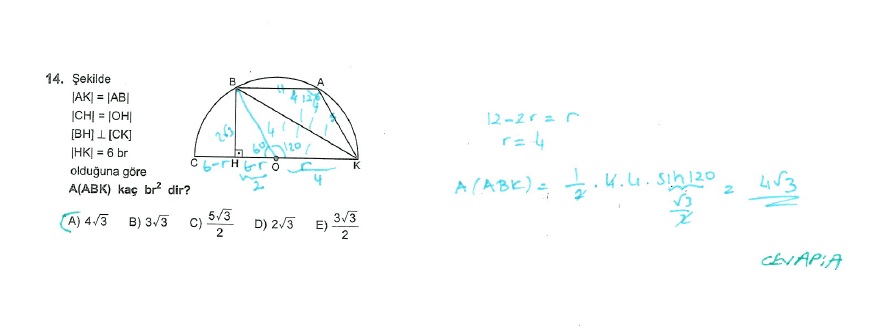 14. Şekilde
|AK| = |AB|
|CH| = |OH|
[BH] ⊥ [CK]
|HK| = 6 br
olduğuna göre
A(ABK) kaç br² dir?
A) 4√3 B) 3√3 C) 5√3/2 D) 2√3 E) 3√3/2
B A
4 120
4
2√3 4
60 120
C 6-r H 6-r O r K
2 4
12-2r = r
r = 4
A(ABK) = 1/2 . 4.4. sin120 = 4√3
√3/2
CEVAP: A